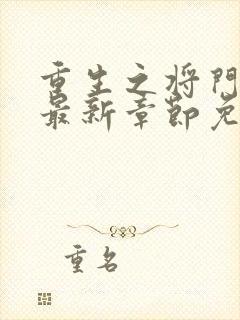 重生之将门
最新章节免
重名